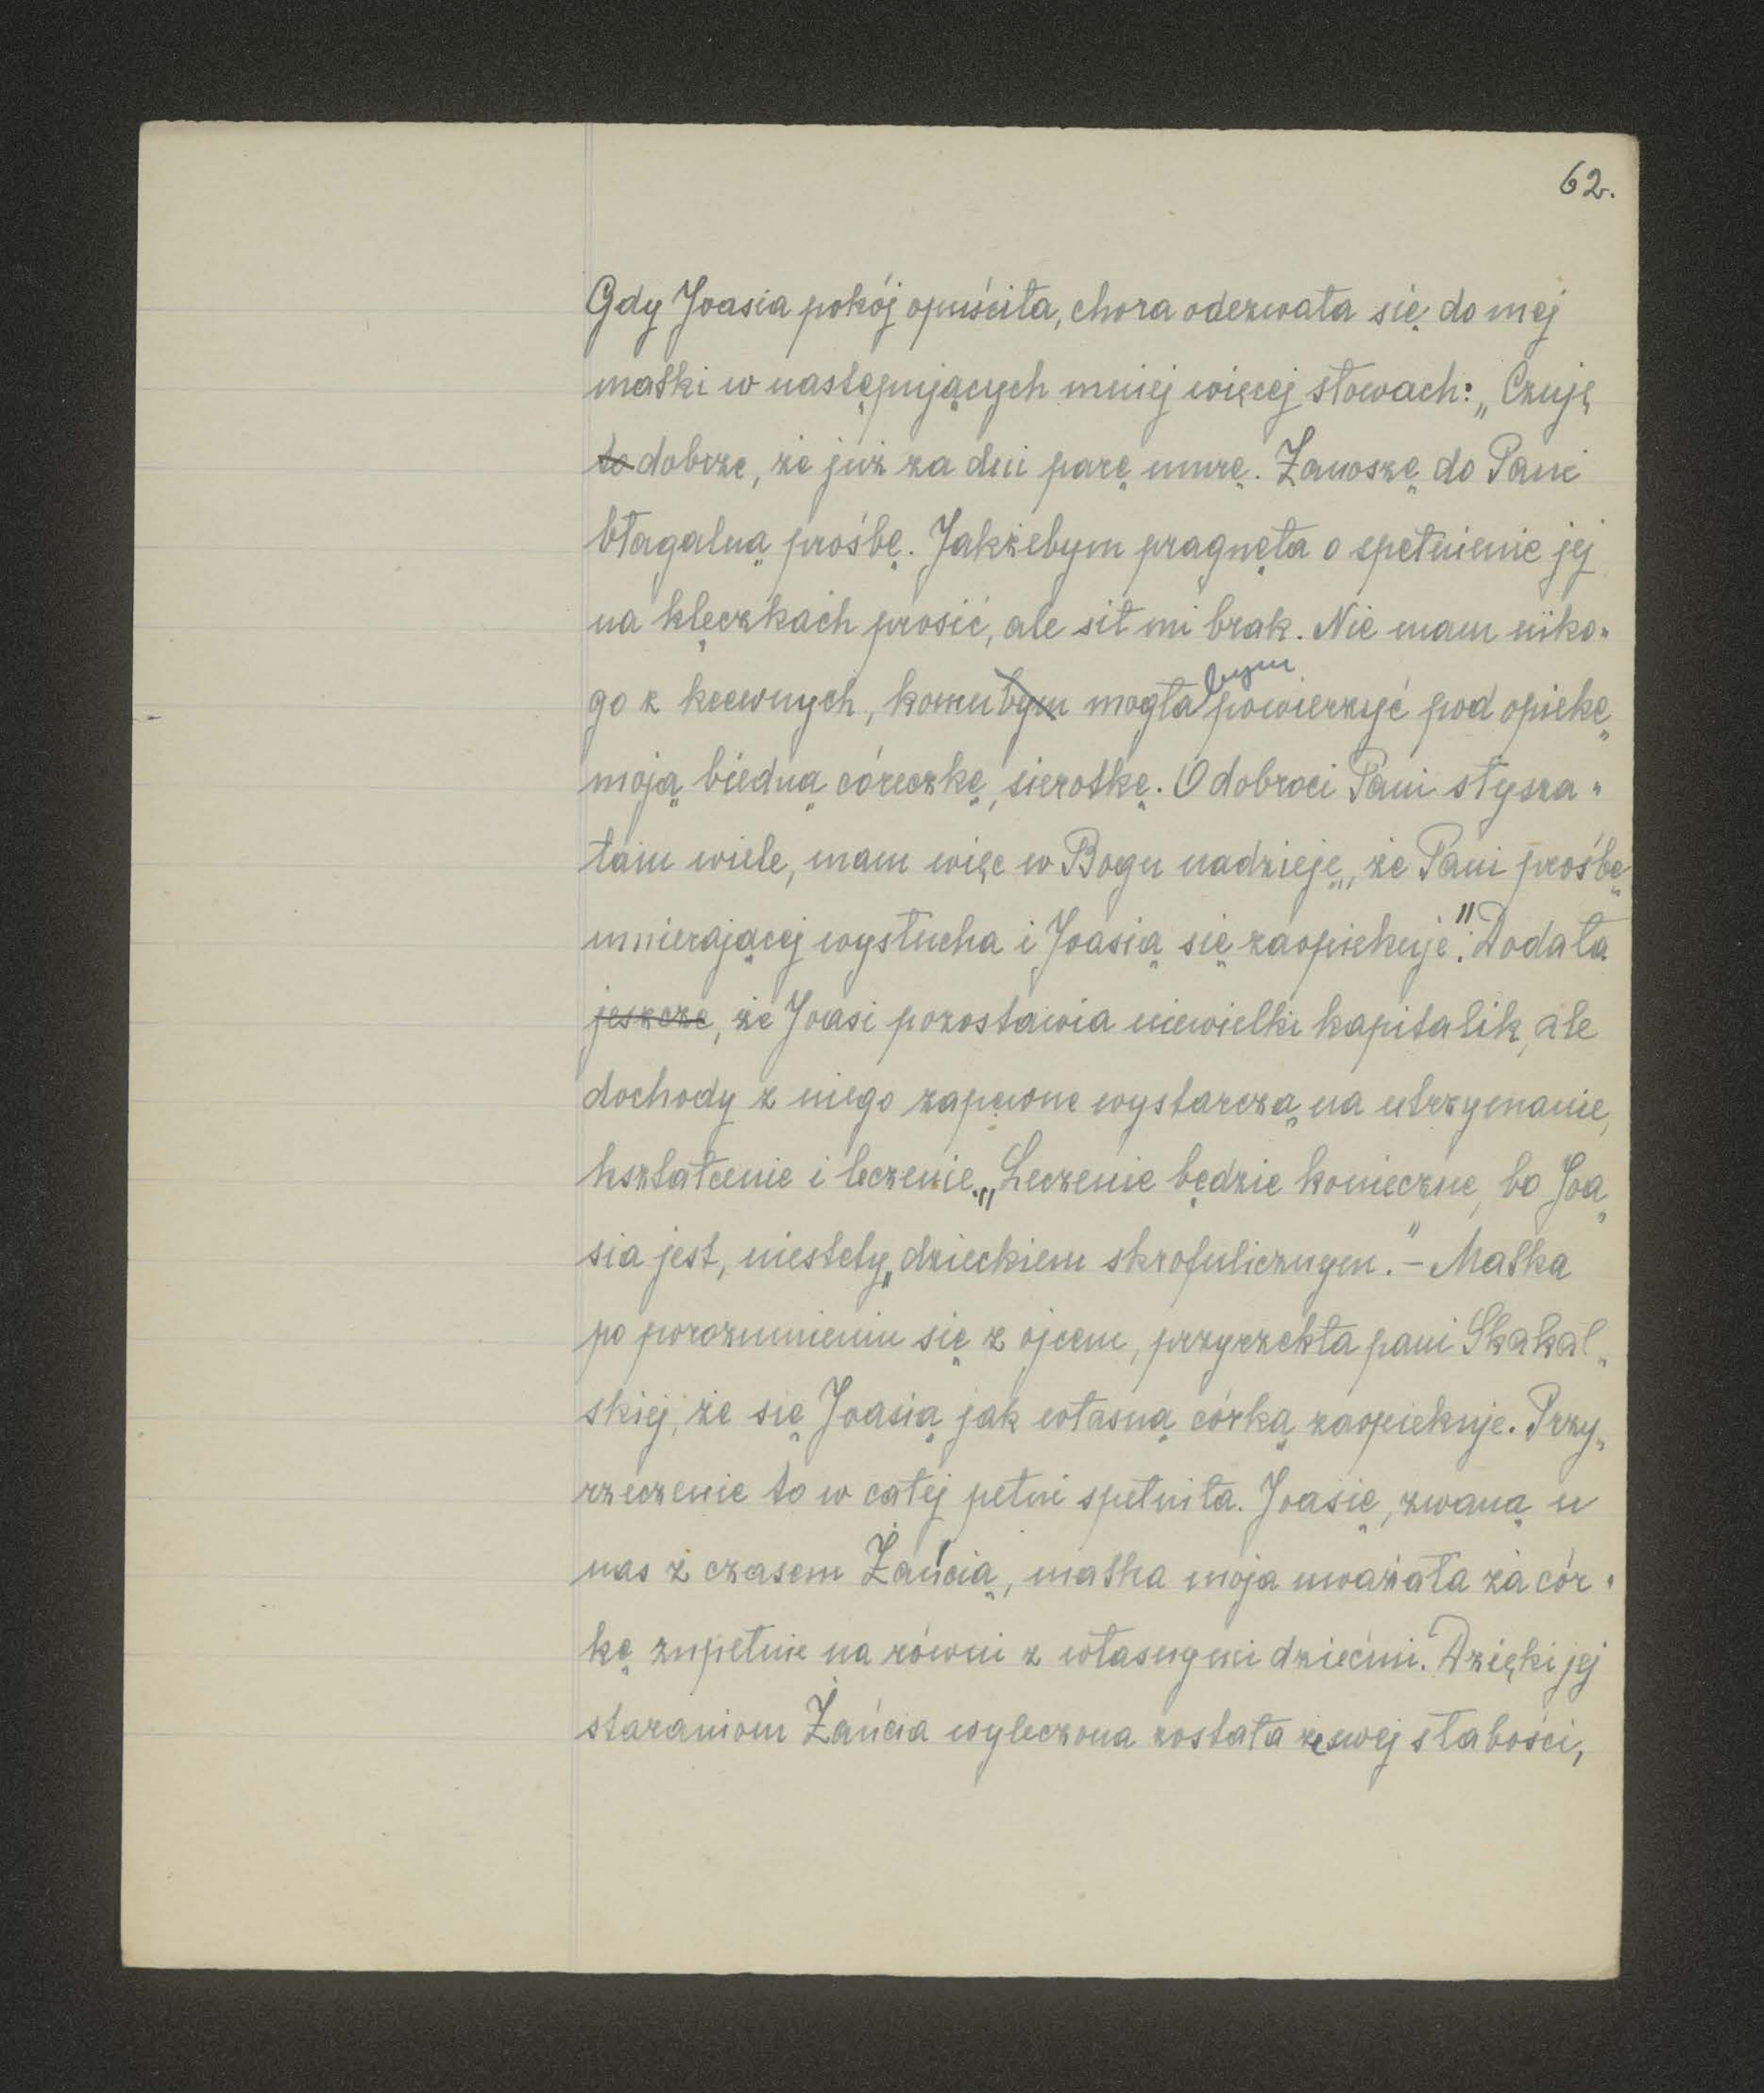 62.
Gdy Joasia pokój opuściła, chora odezwała się do mej
matki w następujących mniej więcej słowach: „Czuję
~~to~~ dobrze, że już za dni parę umrę. Zanoszę do Pani
błagalną prośbę. Jakżebym pragnęła o spełnienie jej
na klęczkach prosić, ale sił mi brak. Nie mam niko-
go z krewnych, komu ~~bym~~ mogła bym powierzyć pod opiekę
moją biedną córeczkę, sierotkę. O dobroci Pani słysza-
łam wiele, mam więc w Bogu nadzieję, że Pani prośbę
umierającej wysłucha i Joasią się zaopiekuje." Dodała
~~jeszcze~~, że Joasi pozostawia niewielki kapitalik, ale
dochody z niego zapewne wystarczą na utrzymanie,
kształcenie i leczenie. „Leczenie będzie konieczne, bo Joa-
sia jest, niestety, dzieckiem skrofulicznym." – Matka
po porozumieniu się z ojcem, przyrzekła pani Skakal-
skiej, że się Joasią jak własną córką zaopiekuje. Przy-
rzeczenie to w całej pełni spełniła. Joasię, zwaną u
nas z czasem Żańcią, matka moja uważała za cór-
kę zupełnie na równi z własnymi dziećmi. Dzięki jej
staraniom Żańcia wyleczona została ze swej słabości,